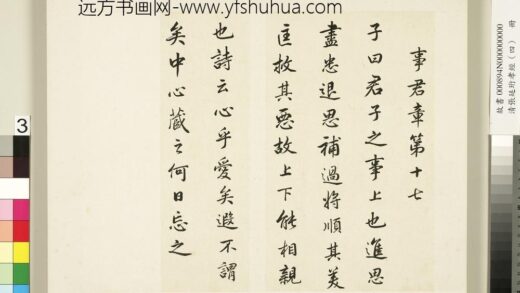 远方书画网-www.yfshuhua.com
事君章第十七
子曰君子之事上也進思
盡忠退思補過將順其美
匡救其惡故上下能相親
也詩云心乎愛矣遐不謂
矣中心藏之何日忘之
故書 000894N000000000
清張廷珩孝經（四） 冊
3